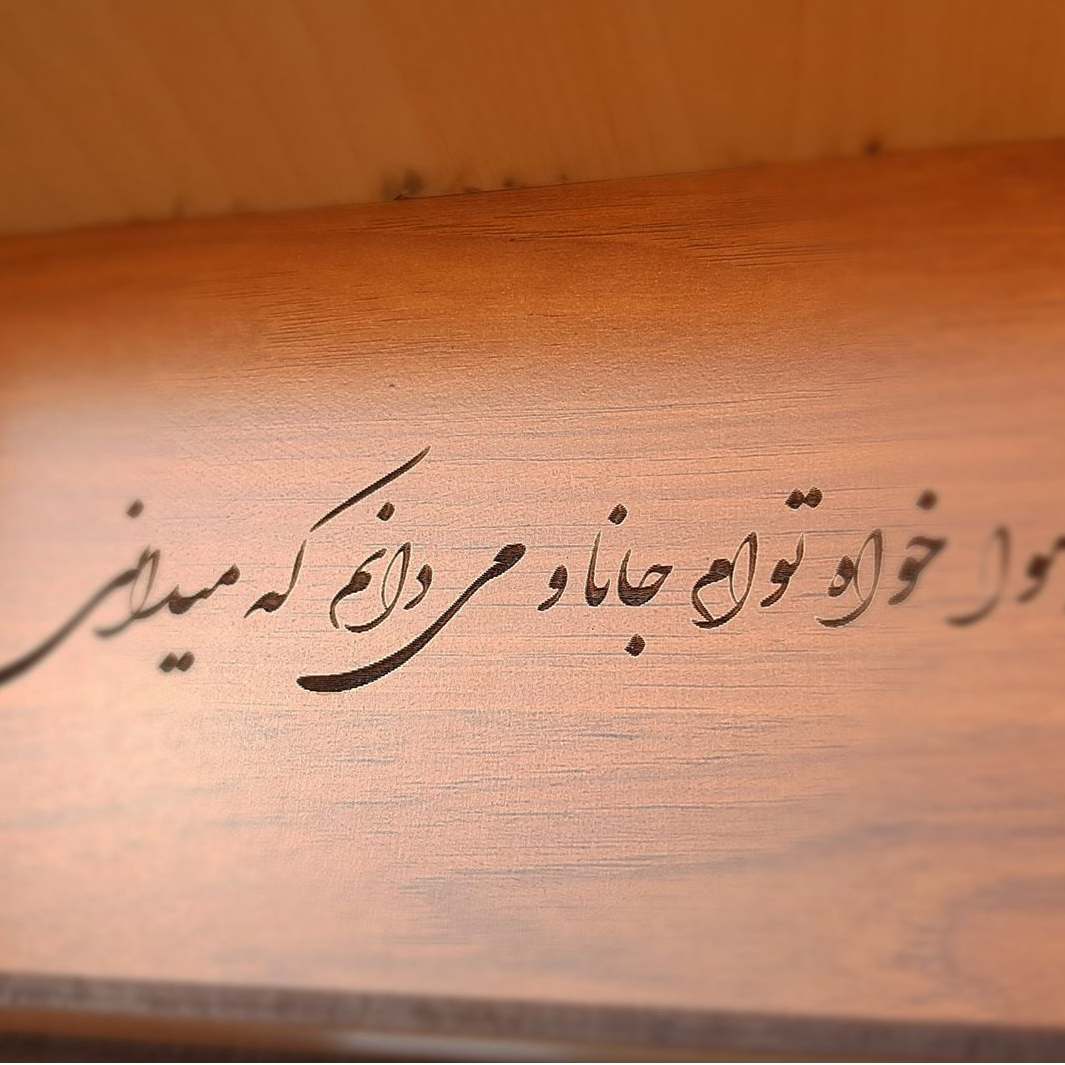 هوا خواه توام جانا و می دانم که میدانی